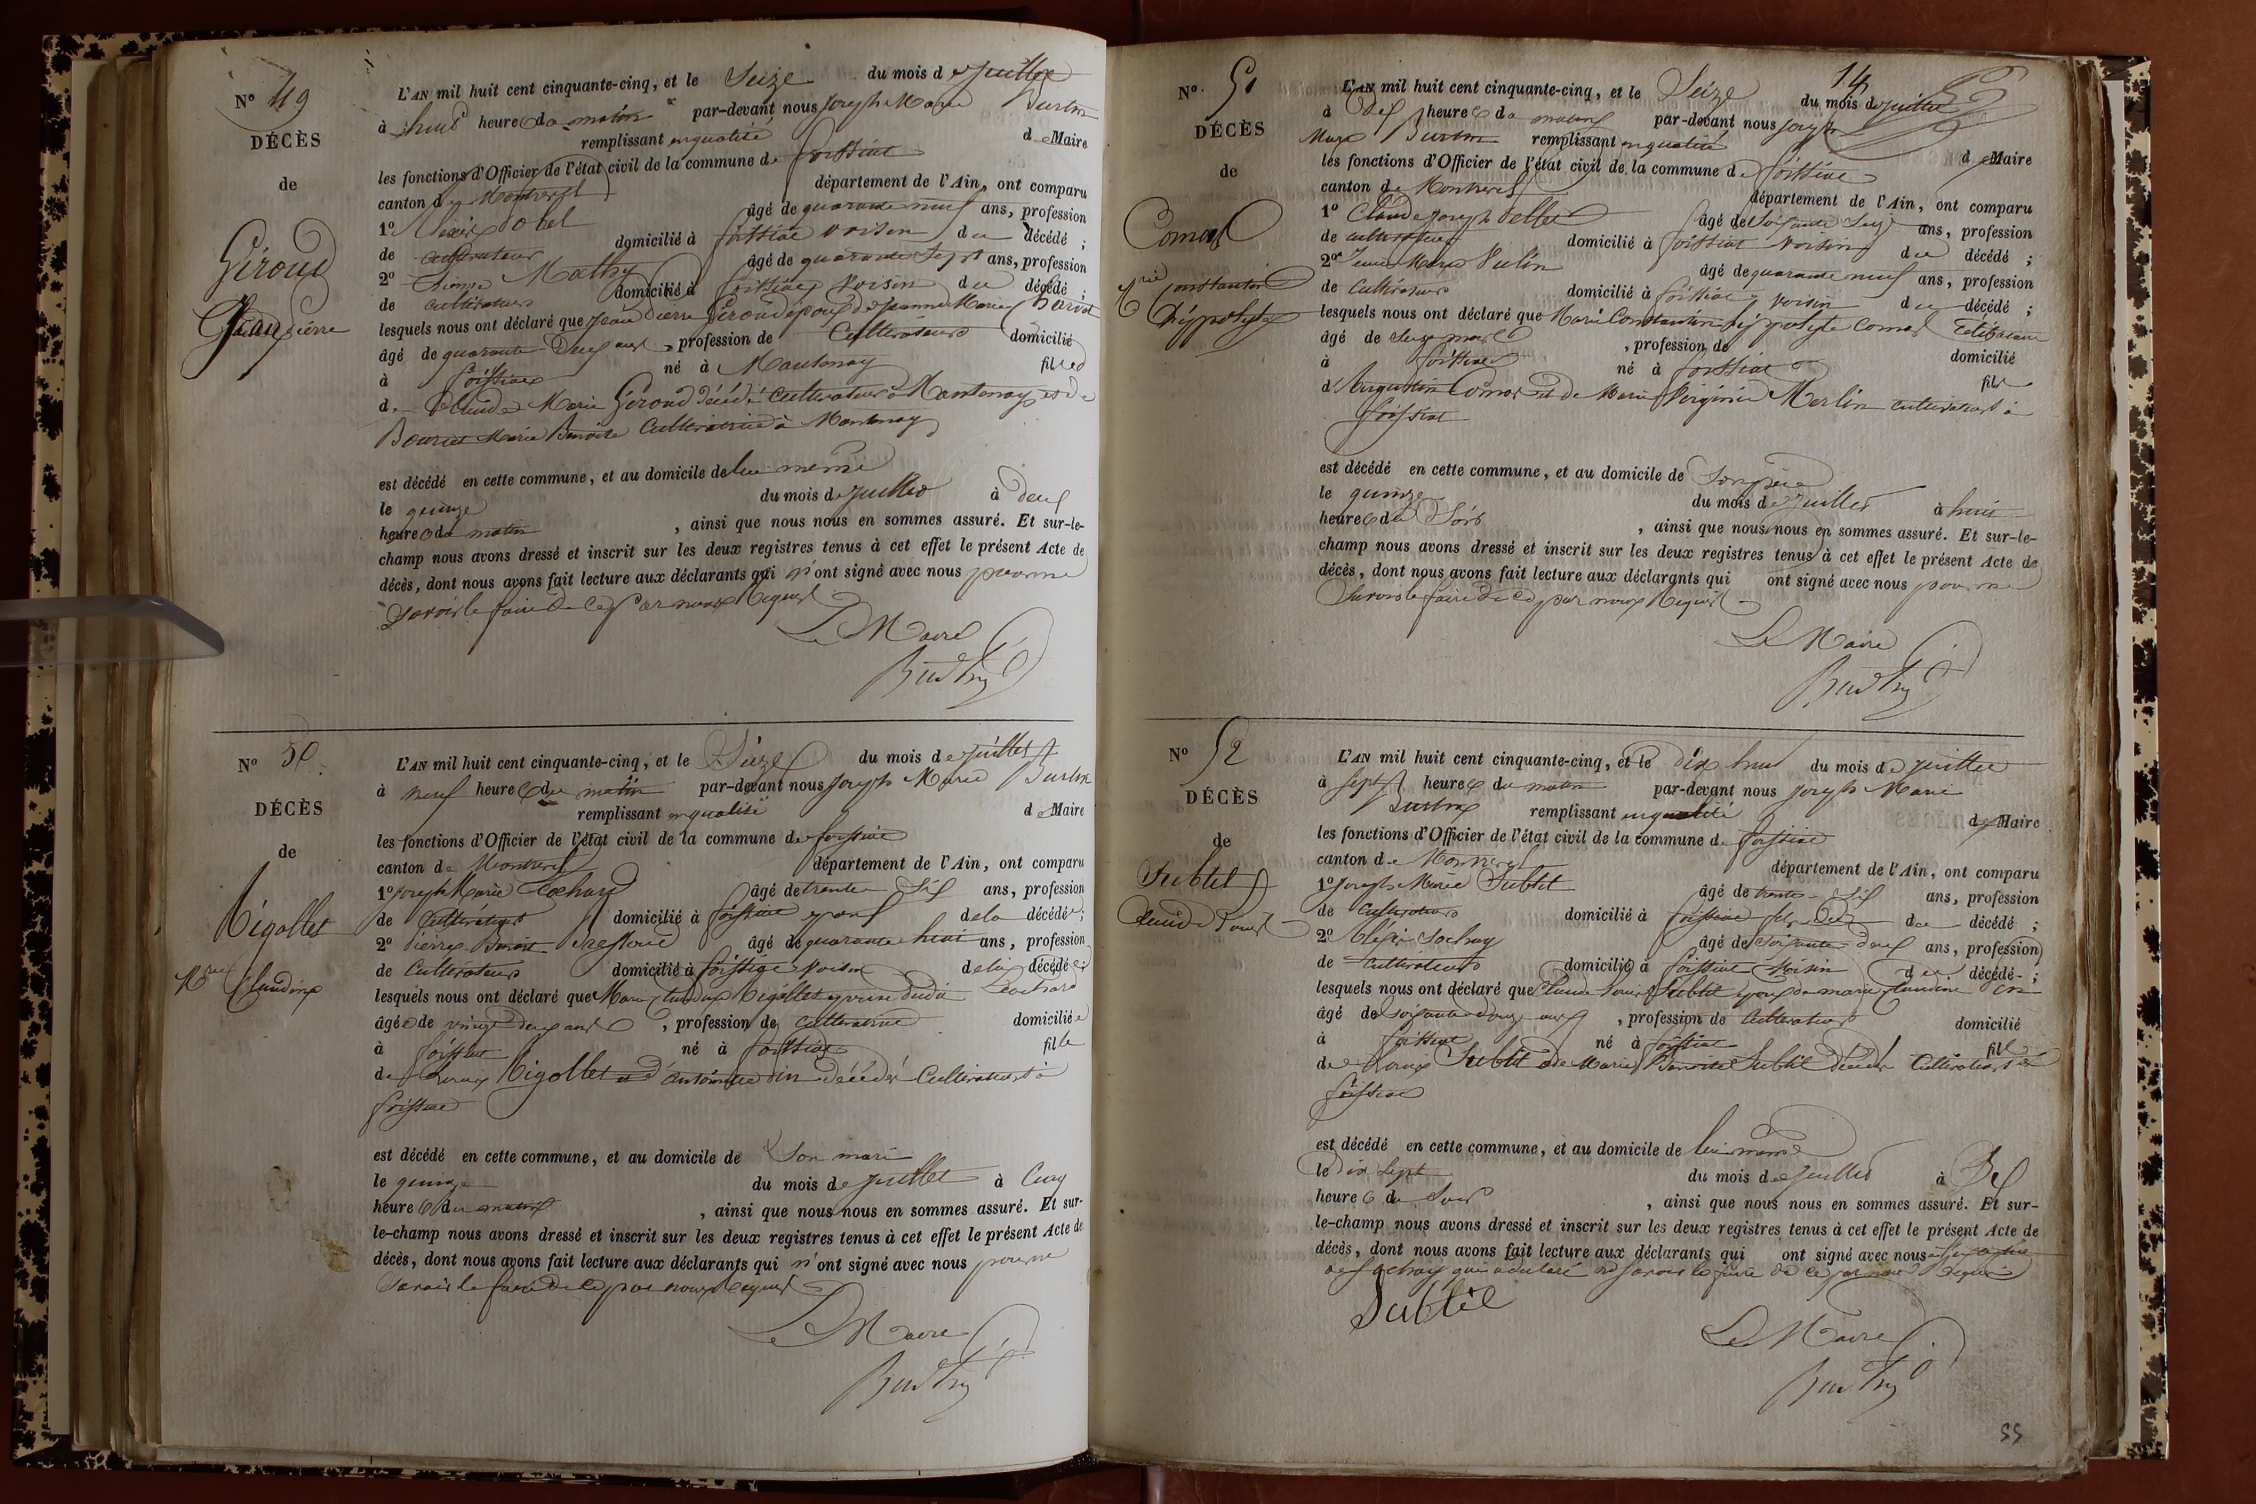 N° 49
DÉCÈS
de
Giroud
Jean Pierre
L'AN mil huit cent cinquante-cinq, et le Seize du mois de juillet
à huit heures du matin par-devant nous Joseph Marie
remplissant en qualité de Maire
les fonctions d'Officier de l'état civil de la commune de foissiat
canton de Montrevel département de l'Ain, ont comparu
1° âgé de quarante neuf ans, profession
de cultivateur domicilié à foissiat voisin du décédé ;
2° Mathy âgé de quarante sept ans, profession
de cultivateur domicilié à foissiat voisin du décédé ;
lesquels nous ont déclaré que Jean Pierre Giroud époux de Jeanne Marie
âgé de quarante deux ans, profession de Cultivateur domicilié
à foissiat né à Mantenay fils
de Claude Marie Giroud décédé cultivateur à Mantenay et de
Marie Benoite Cultivatrice à Mantenay
est décédé en cette commune, et au domicile de lui même
le quinze du mois de juillet à deux
heures du matin, ainsi que nous nous en sommes assuré. Et sur-le-
champ nous avons dressé et inscrit sur les deux registres tenus à cet effet le présent Acte de
décès, dont nous avons fait lecture aux déclarants qui n'ont signé avec nous pour ne
savoir le faire de ce par nous Requis
Le Maire
N° 50
DÉCÈS
de
Rigollet
Mie Claudine
L'AN mil huit cent cinquante-cinq, et le Seize du mois de juillet
à neuf heures du matin par-devant nous Joseph Marie
remplissant en qualité de Maire
les fonctions d'Officier de l'état civil de la commune de foissiat
canton de Montrevel département de l'Ain, ont comparu
1° Joseph Marie âgé de trente Six ans, profession
de Cultivateur domicilié à foissiat époux de la décédée ;
2° Pierre Benoit âgé de quarante huit ans, profession
de Cultivateur domicilié à foissiat voisin de la décédée ;
lesquels nous ont déclaré que Marie Claudine Rigollet épouse dudit
âgée de vingt deux ans, profession de cultivatrice domiciliée
à foissiat né à foissiat fille
de Rigollet et d'antoinette décédés Cultivateurs à
foissiat
est décédé en cette commune, et au domicile de Son mari
le quinze du mois de juillet à Cinq
heures du matin, ainsi que nous nous en sommes assuré. Et sur-
le-champ nous avons dressé et inscrit sur les deux registres tenus à cet effet le présent Acte de
décès, dont nous avons fait lecture aux déclarants qui n'ont signé avec nous pour ne
savoir le faire de ce par nous Requis
Le Maire
14
N° 51
DÉCÈS
de
Comas
Mie Constantin
hippolyte
L'AN mil huit cent cinquante-cinq, et le Seize du mois de juillet
à dix heures du matin par-devant nous Joseph
Marie remplissant en qualité de Maire
les fonctions d'Officier de l'état civil de la commune de foissiat
canton de Montrevel département de l'Ain, ont comparu
1° Claude Joseph âgé de Soixante Seize ans, profession
de cultivateur domicilié à foissiat voisin du décédé ;
2° Marie Vulin âgé de quarante neuf ans, profession
de Cultivateur domicilié à foissiat voisin du décédé ;
lesquels nous ont déclaré que Marie Constantin hippolyte Comas Célibataire
âgé de mois, profession de domicilié
à foissiat né à foissiat fils
d'Augustin Comas et de Marie Virginie Merlin cultivateurs à
foissiat
est décédé en cette commune, et au domicile de Son père
le quinze du mois de juillet à huit
heures du Soir, ainsi que nous nous en sommes assuré. Et sur-le-
champ nous avons dressé et inscrit sur les deux registres tenus à cet effet le présent Acte de
décès, dont nous avons fait lecture aux déclarants qui ont signé avec nous pour ne
Savoir le faire de ce par nous Requis
Le Maire
N° 52
DÉCÈS
de
Subtil
Claude Louis
L'AN mil huit cent cinquante-cinq, et le dix huit du mois de juillet
à Sept heures du matin par-devant nous Joseph Marie
remplissant en qualité de Maire
les fonctions d'Officier de l'état civil de la commune de foissiat
canton de Montrevel département de l'Ain, ont comparu
1° Joseph Marie Subtil âgé de trente Six ans, profession
de Cultivateur domicilié à foissiat fils du décédé ;
2° Sochay âgé de Soixante deux ans, profession
de cultivateur domicilié à foissiat Voisin du décédé ;
lesquels nous ont déclaré que Claude Louis Subtil époux de marie Claudine
âgé de Soixante douze ans, profession de Cultivateur domicilié
à foissiat né à foissiat fils
de Louis Subtil et de Marie Benoite Subtil décédés Cultivateurs à
foissiat
est décédé en cette commune, et au domicile de lui même
le dix Sept du mois de juillet à Six
heures du Soir, ainsi que nous nous en sommes assuré. Et sur-
le-champ nous avons dressé et inscrit sur les deux registres tenus à cet effet le présent Acte de
décès, dont nous avons fait lecture aux déclarants qui ont signé avec nous
Sochay qui a déclaré ne Savoir le faire de ce par nous Requis
Subtil
Le Maire
55